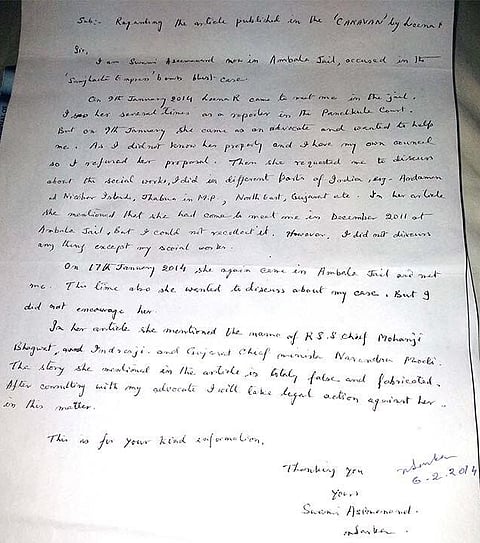 Sub:- Regarding the article published in the 'CARAVAN' by Leena
Sir,
I am Swami Aseemanand now in Ambala Jail, accused in the
'Samjhauta Express' bomb blast case.
On 9th January 2014 Leena R came to met me in the jail.
I saw her several times as a reporter in the Panchkula Court.
But on 9th January she came as an advocate and wanted to help
me. As I did not know her properly and I have my own council
so I refused her proposal. Then she requested me to discuss
about the social works, I did in different parts of India, eg. Andaman
nd Nicobar Islands, Jhabua in M.P., North East, Gujarat etc. In her article
she mentioned that she had come to meet me in December 2011 at
Ambala Jail, but I could not recollect it. However, I did not discuss
any thing except my social works.
On 17th January 2014 she again came in Ambala Jail and met
me. This time also she wanted to discuss about my case. But I
did not encourage her.
In her article she mentioned the name of R.S.S chief Mohanji
Bhagwat, and Indreshji and Gujarat Chief minister Narendra Modi.
The story she mentioned in the article is totaly false and fabricated.
After consulting with my advocate I will take legal action against her
in this matter.
This is for your kind information.
Thanking you
6.2.2014
yours
Swami Aseemanand.